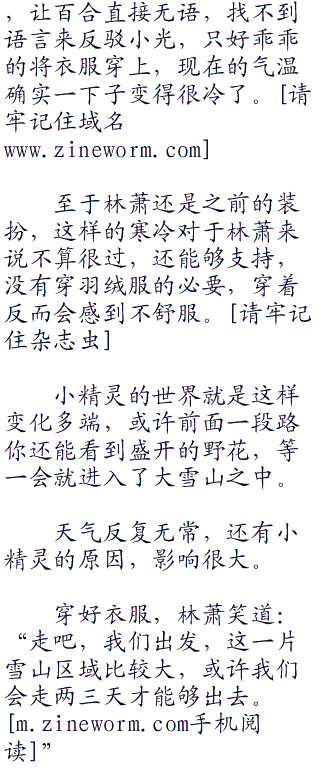 ，让百合直接无语，找不到
语言来反驳小光，只好乖乖
的将衣服穿上，现在的气温
确实一下子变得很冷了。[请
牢记住域名
www.zineworm.com]
至于林萧还是之前的装
扮，这样的寒冷对于林萧来
说不算很过，还能够支持，
没有穿羽绒服的必要，穿着
反而会感到不舒服。[请牢记
住杂志虫]
小精灵的世界就是这样
变化多端，或许前面一段路
你还能看到盛开的野花，等
一会就进入了大雪山之中。
天气反复无常，还有小
精灵的原因，影响很大。
穿好衣服，林萧笑道：
“走吧，我们出发，这一片
雪山区域比较大，或许我们
会走两三天才能够出去。
[m.zineworm.com手机阅
读]”